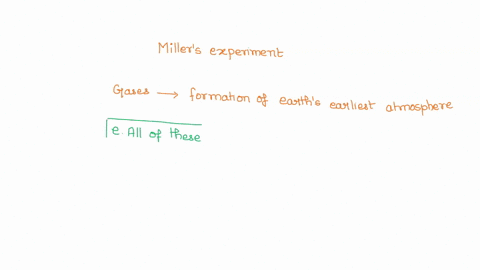 Miller's experiment
Gases → formation of earth's earliest atmosphere
e. All of these